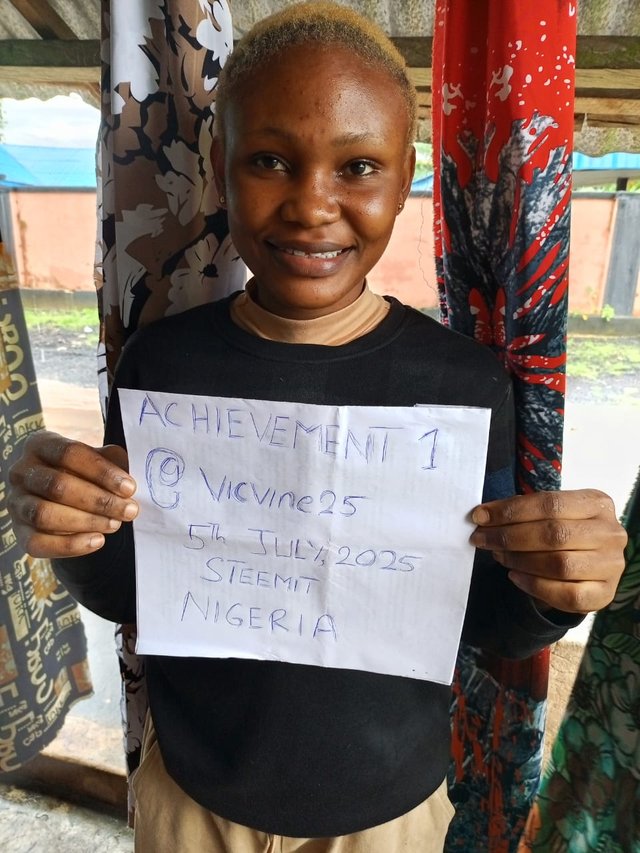 ACHIEVEMENT 1
@ Vicvine25
5th JULY, 2025
STEEMIT
NIGERIA